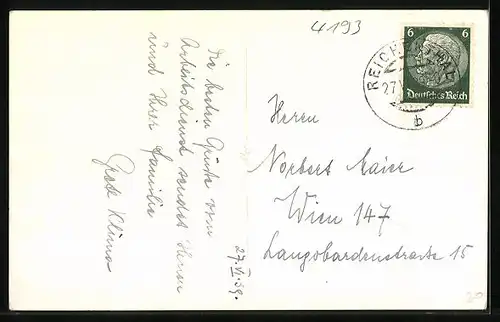 4193
6 6
Deutsches Reich
REICHE
27. V
b
Die besten Grüße vom
Arbeitsdienst sendet Ihnen
und Ihrer Familie
Grete Klima
27.VI.39.
Herrn
Norbert Maier
Wien 147
Langobardenstraße 15
20